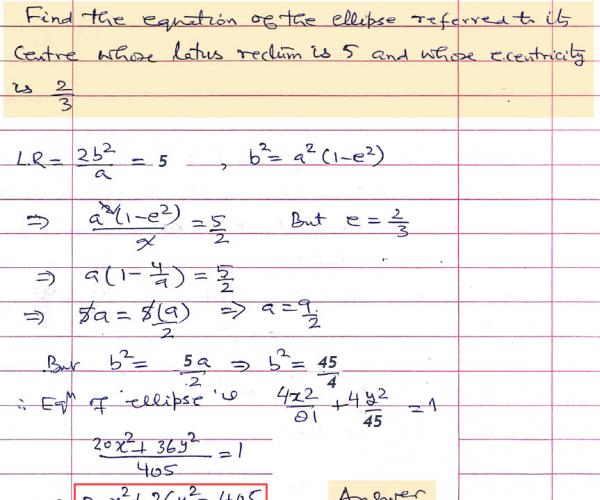 Find the equation of the ellipse referred to its
Centre whose latus rectum is 5 and whose eccentricity
is 2/3
L.R = 2b²/a = 5 , b² = a²(1-e²)
⇒ a²(1-e²)/a = 5/2 But e = 2/3
⇒ a(1-4/9) = 5/2
⇒ 5a = 5(9)/2 ⇒ a = 9/2
But b² = 5a/2 ⇒ b² = 45/4
∴ Eqⁿ of ellipse is 4x2/81 + 4y²/45 = 1
20x² + 36y²/405 = 1
Answer